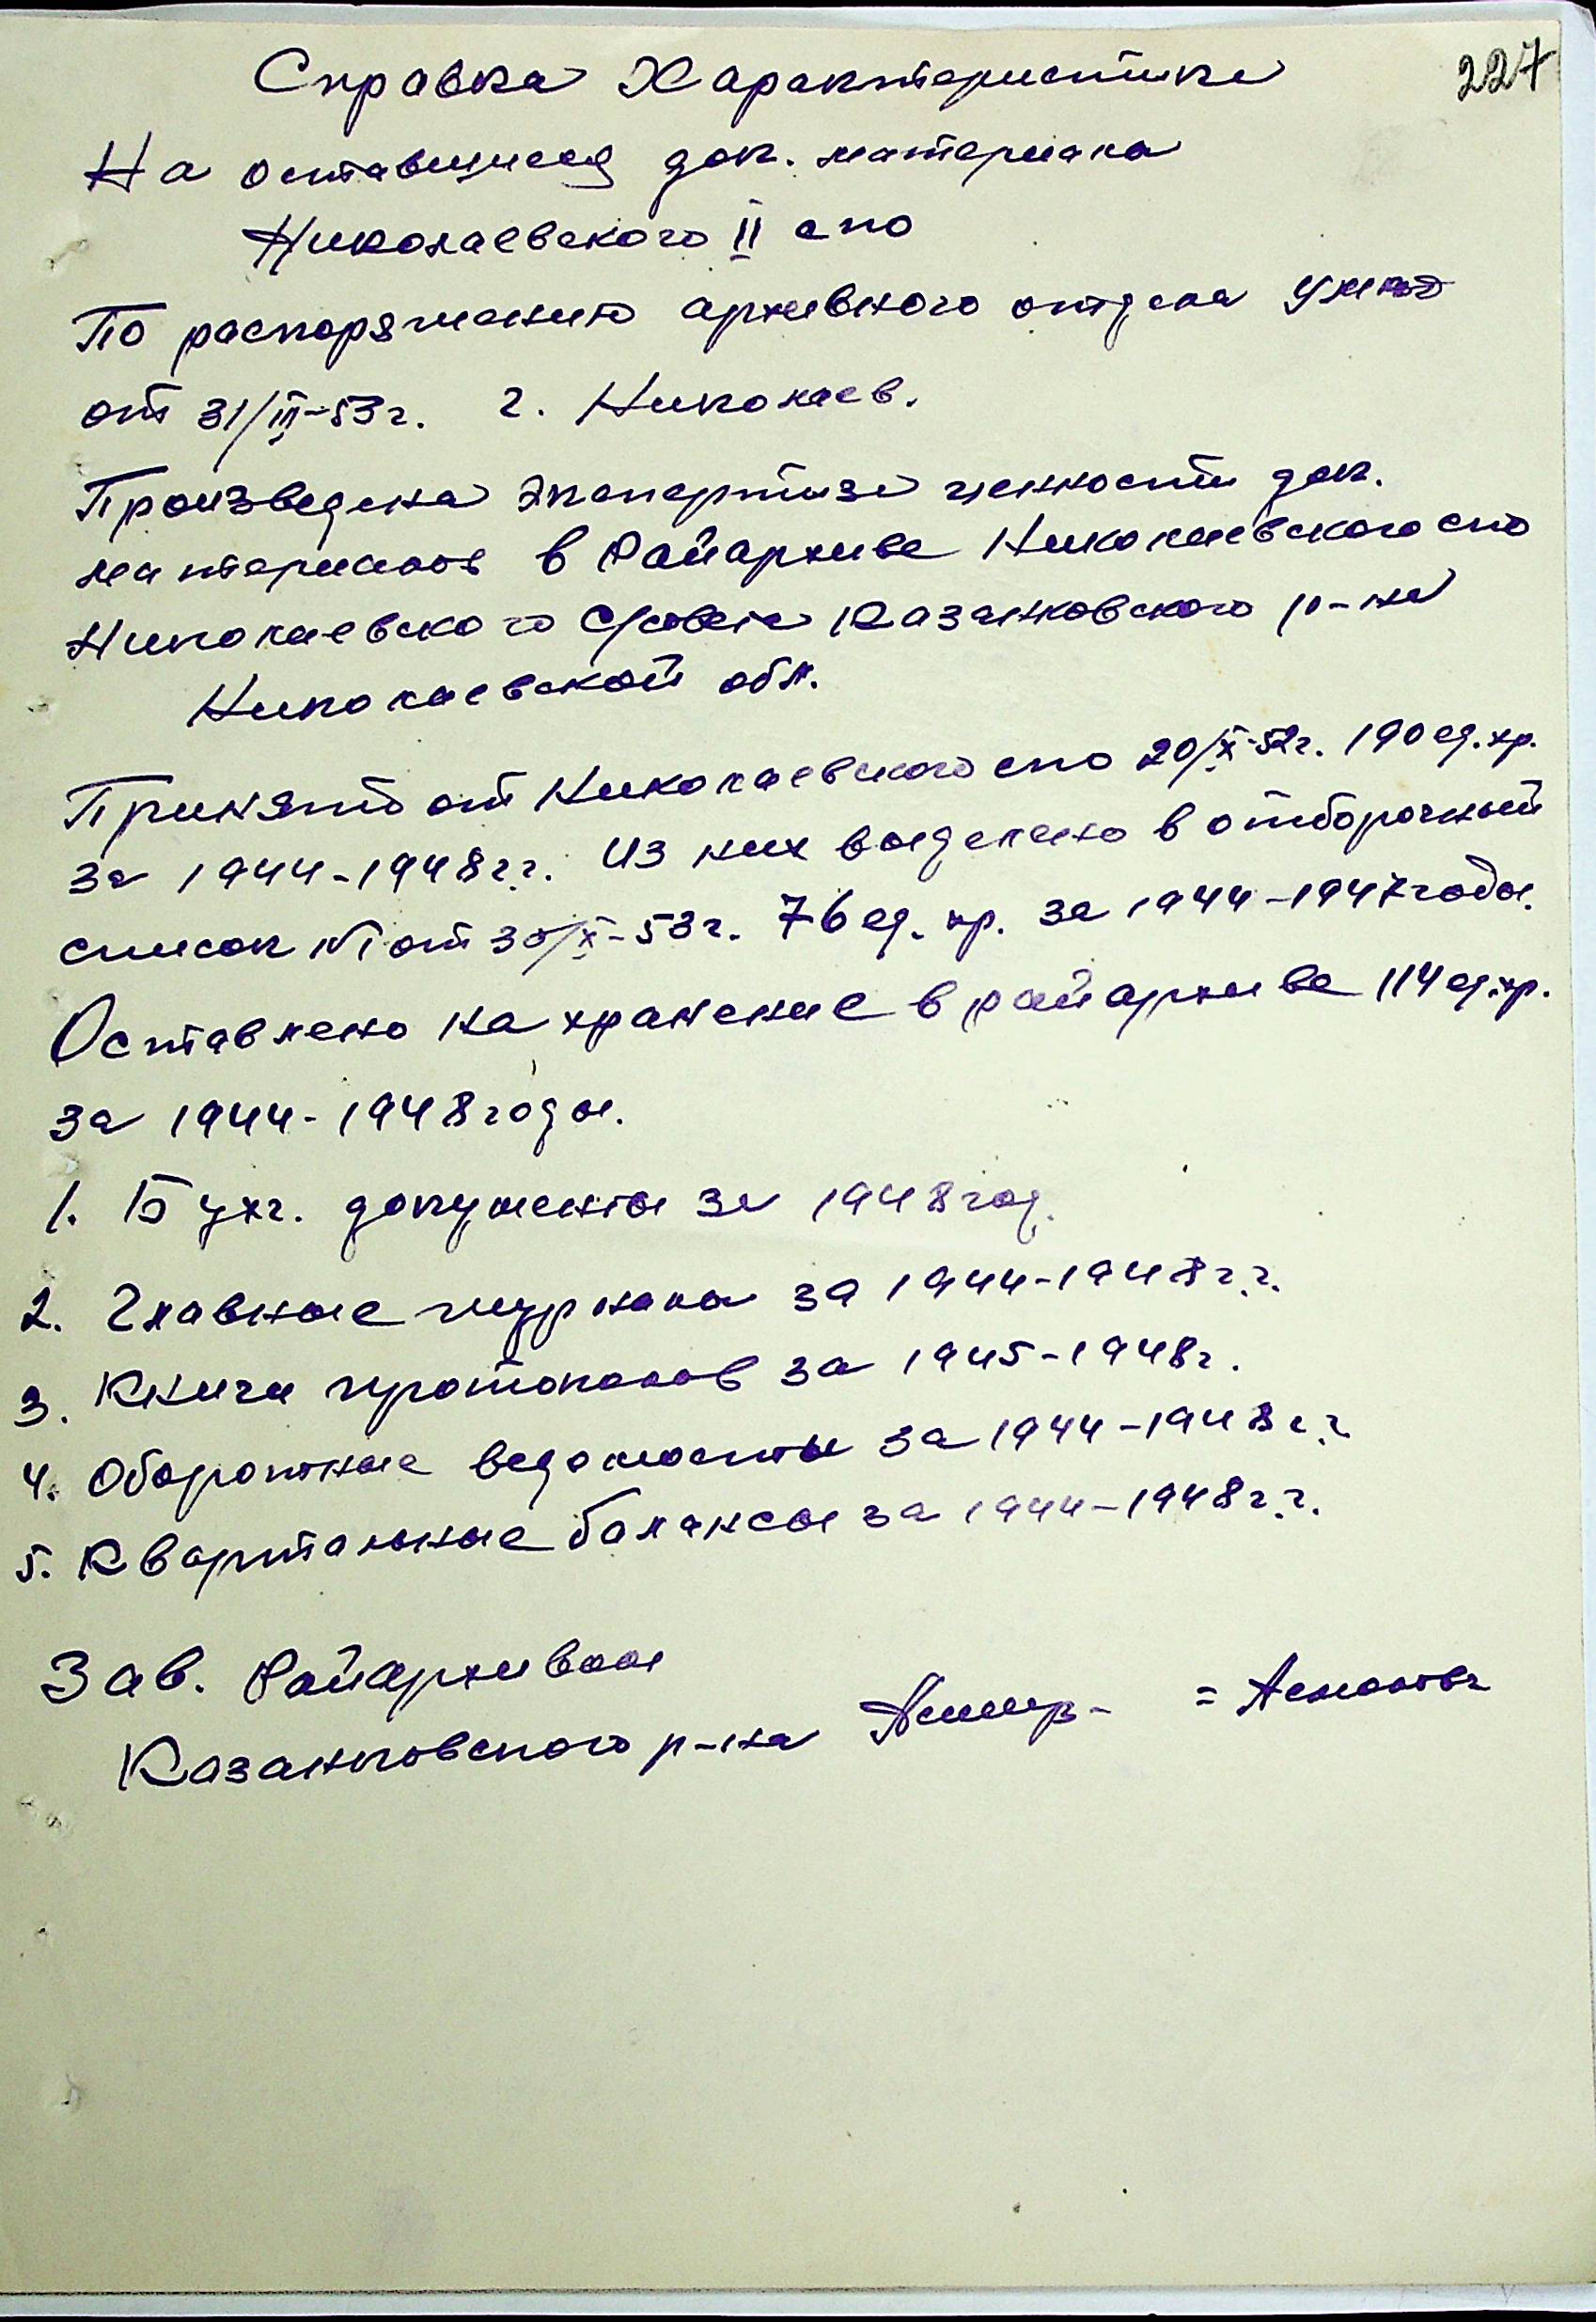 227
Справка Характеристика
На оставшиеся док. материала
Николаевского II спо
По распоряжению архивного отдела УМВД
от 31/III-53г. г. Николаев.
Произведена экспертиза ценности док.
материалов в Райархиве Николаевского спо
Николаевского с/совета Казанковского р-на
Николаевской обл.
Принято от Николаевского спо 20/X-52г. 190 ед. хр.
за 1944-1948г.г. Из них выделено в отборочный
список №1 от 30/X-53г. 76 ед. хр. за 1944-1947 годы.
Оставлено на хранение в райархиве 114 ед. хр.
за 1944-1948 годы.
1. Бухг. документы за 1948 год.
2. Главные журналы за 1944-1948г.г.
3. Книги протоколов за 1945-1948г.
4. Оборотные ведомосты за 1944-1948г.г
5. Квартальные балансы за 1944-1948г.г.
Зав. Райархивом
Казанковского р-на